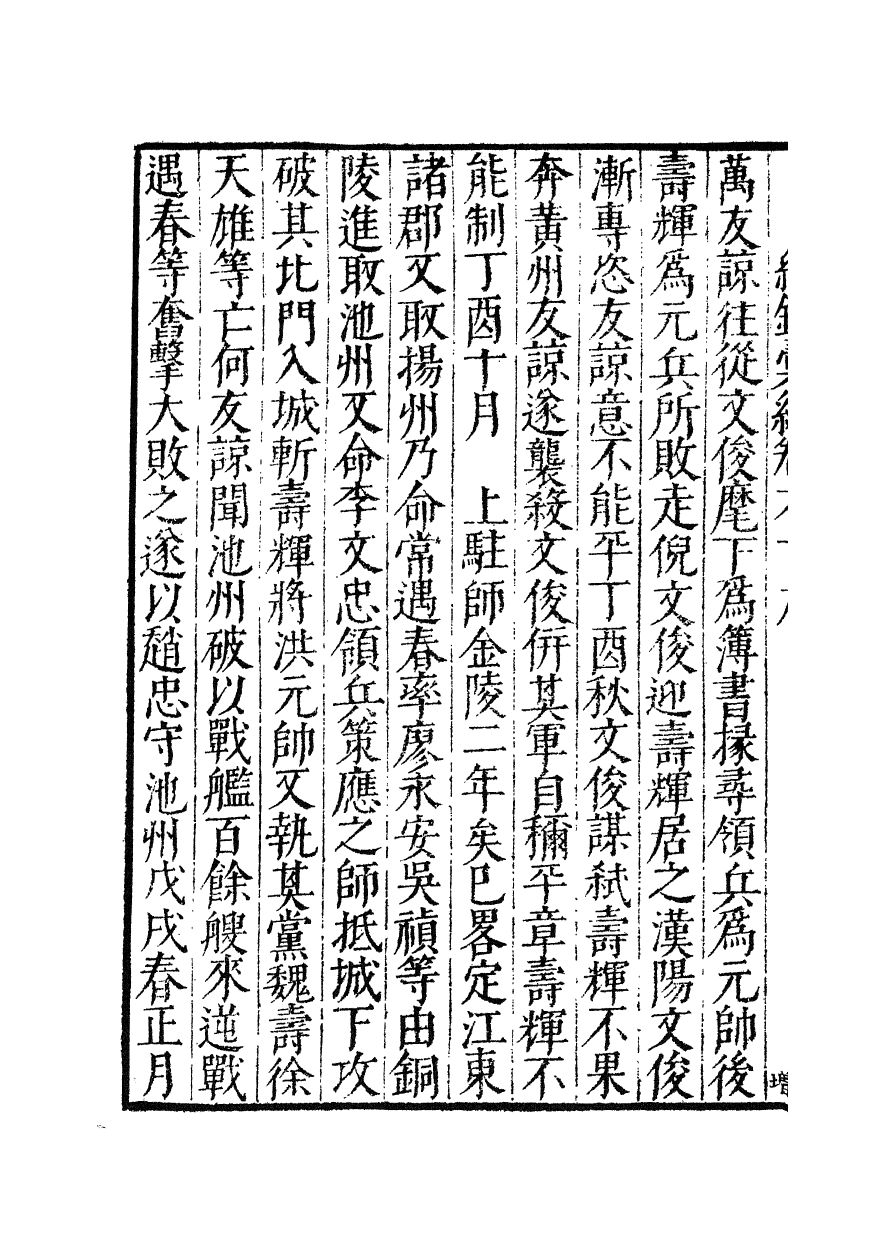 萬友諒往從文俊麾下爲簿書掾尋領兵爲元帥後
壽輝爲元兵所敗走倪文俊迎壽輝居之漢陽文俊
漸專恣友諒意不能平丁酉秋文俊謀弒壽輝不果
奔黃州友諒遂襲殺文俊併其軍自稱平章壽輝不
能制丁酉十月　上駐師金陵二年矣巳畧定江東
諸郡又取揚州乃命常遇春率廖永安吳禎等由銅
陵進取池州又命李文忠領兵策應之師抵城下攻
破其北門入城斬壽輝將洪元帥又執其黨魏壽徐
天雄等亡何友諒聞池州破以戰艦百餘艘來逆戰
遇春等奮擊大敗之遂以趙忠守池州戊戌春正月